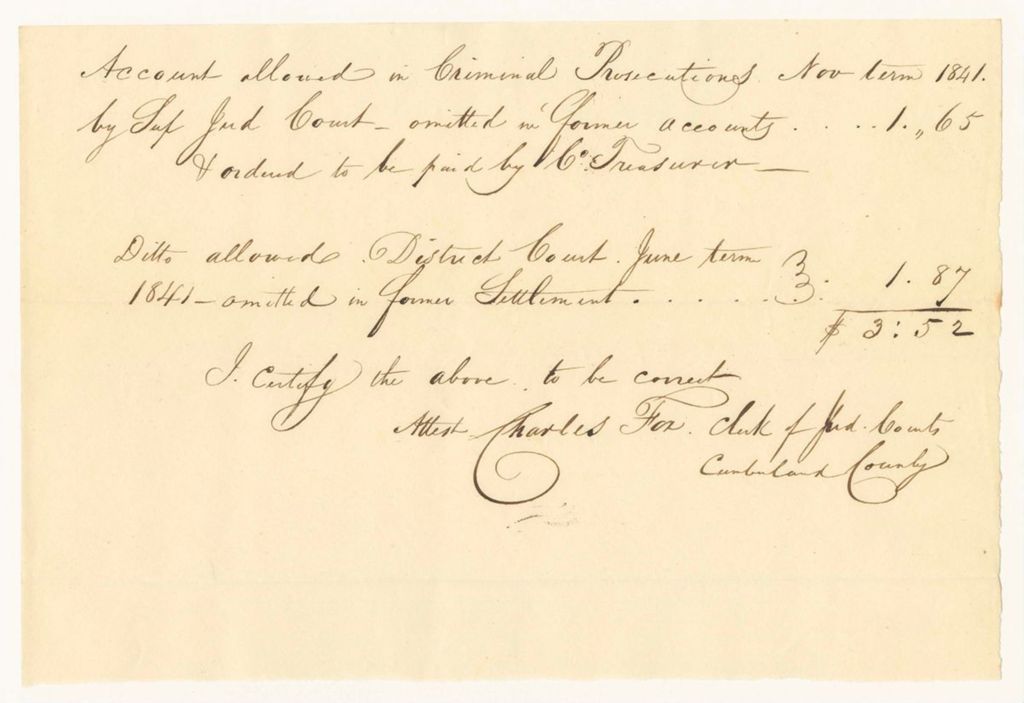 Account allowed in Criminal Prosecutions Nov term 1841.
by Sup Jud Court - omitted in former accounts . . . . . 1. „ 65
& ordered to be paid by Co. Treasurer —
Ditto allowed District Court. June term
1841 - omitted in former Settlement . . . . . . 1. 87
$ 3: 52
I. Certify the above to be correct
Attest Charles Fox. Clerk of Jud. Courts
Cumberland County